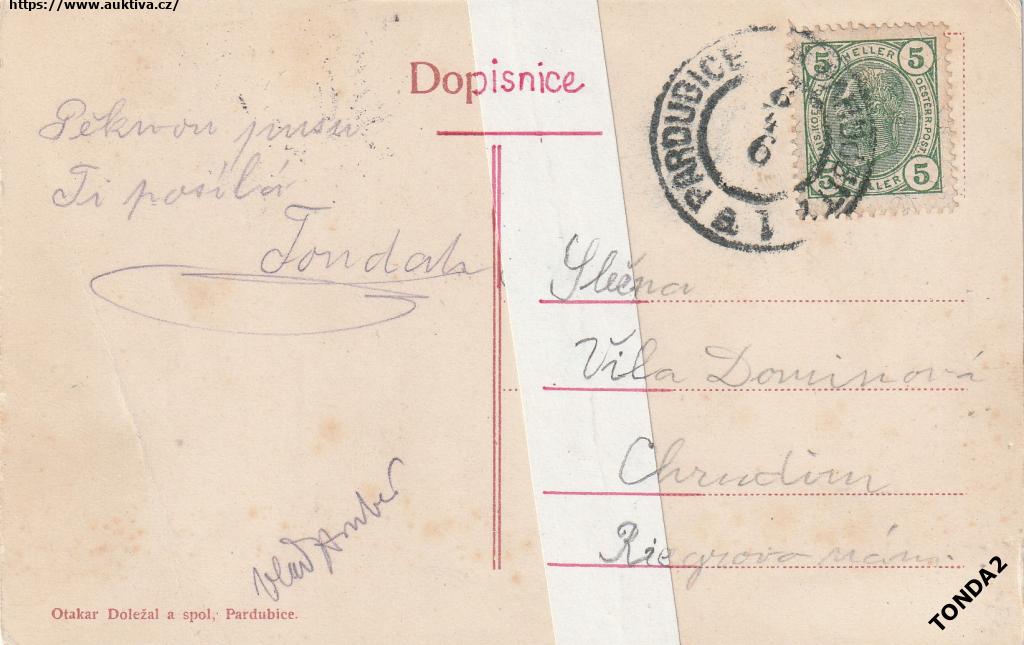 https://www.auktiva.cz/
Dopisnice
Pěknou pusu
Ti posílá
Tonda
Slečna
Vila Dominová
Chrudim
Riegrovo nám.
PARDUBICE
1
6
HELLER
5
5
5
OESTERR. POST
HELLER
Otakar Doležal a spol, Pardubice.
TONDA2